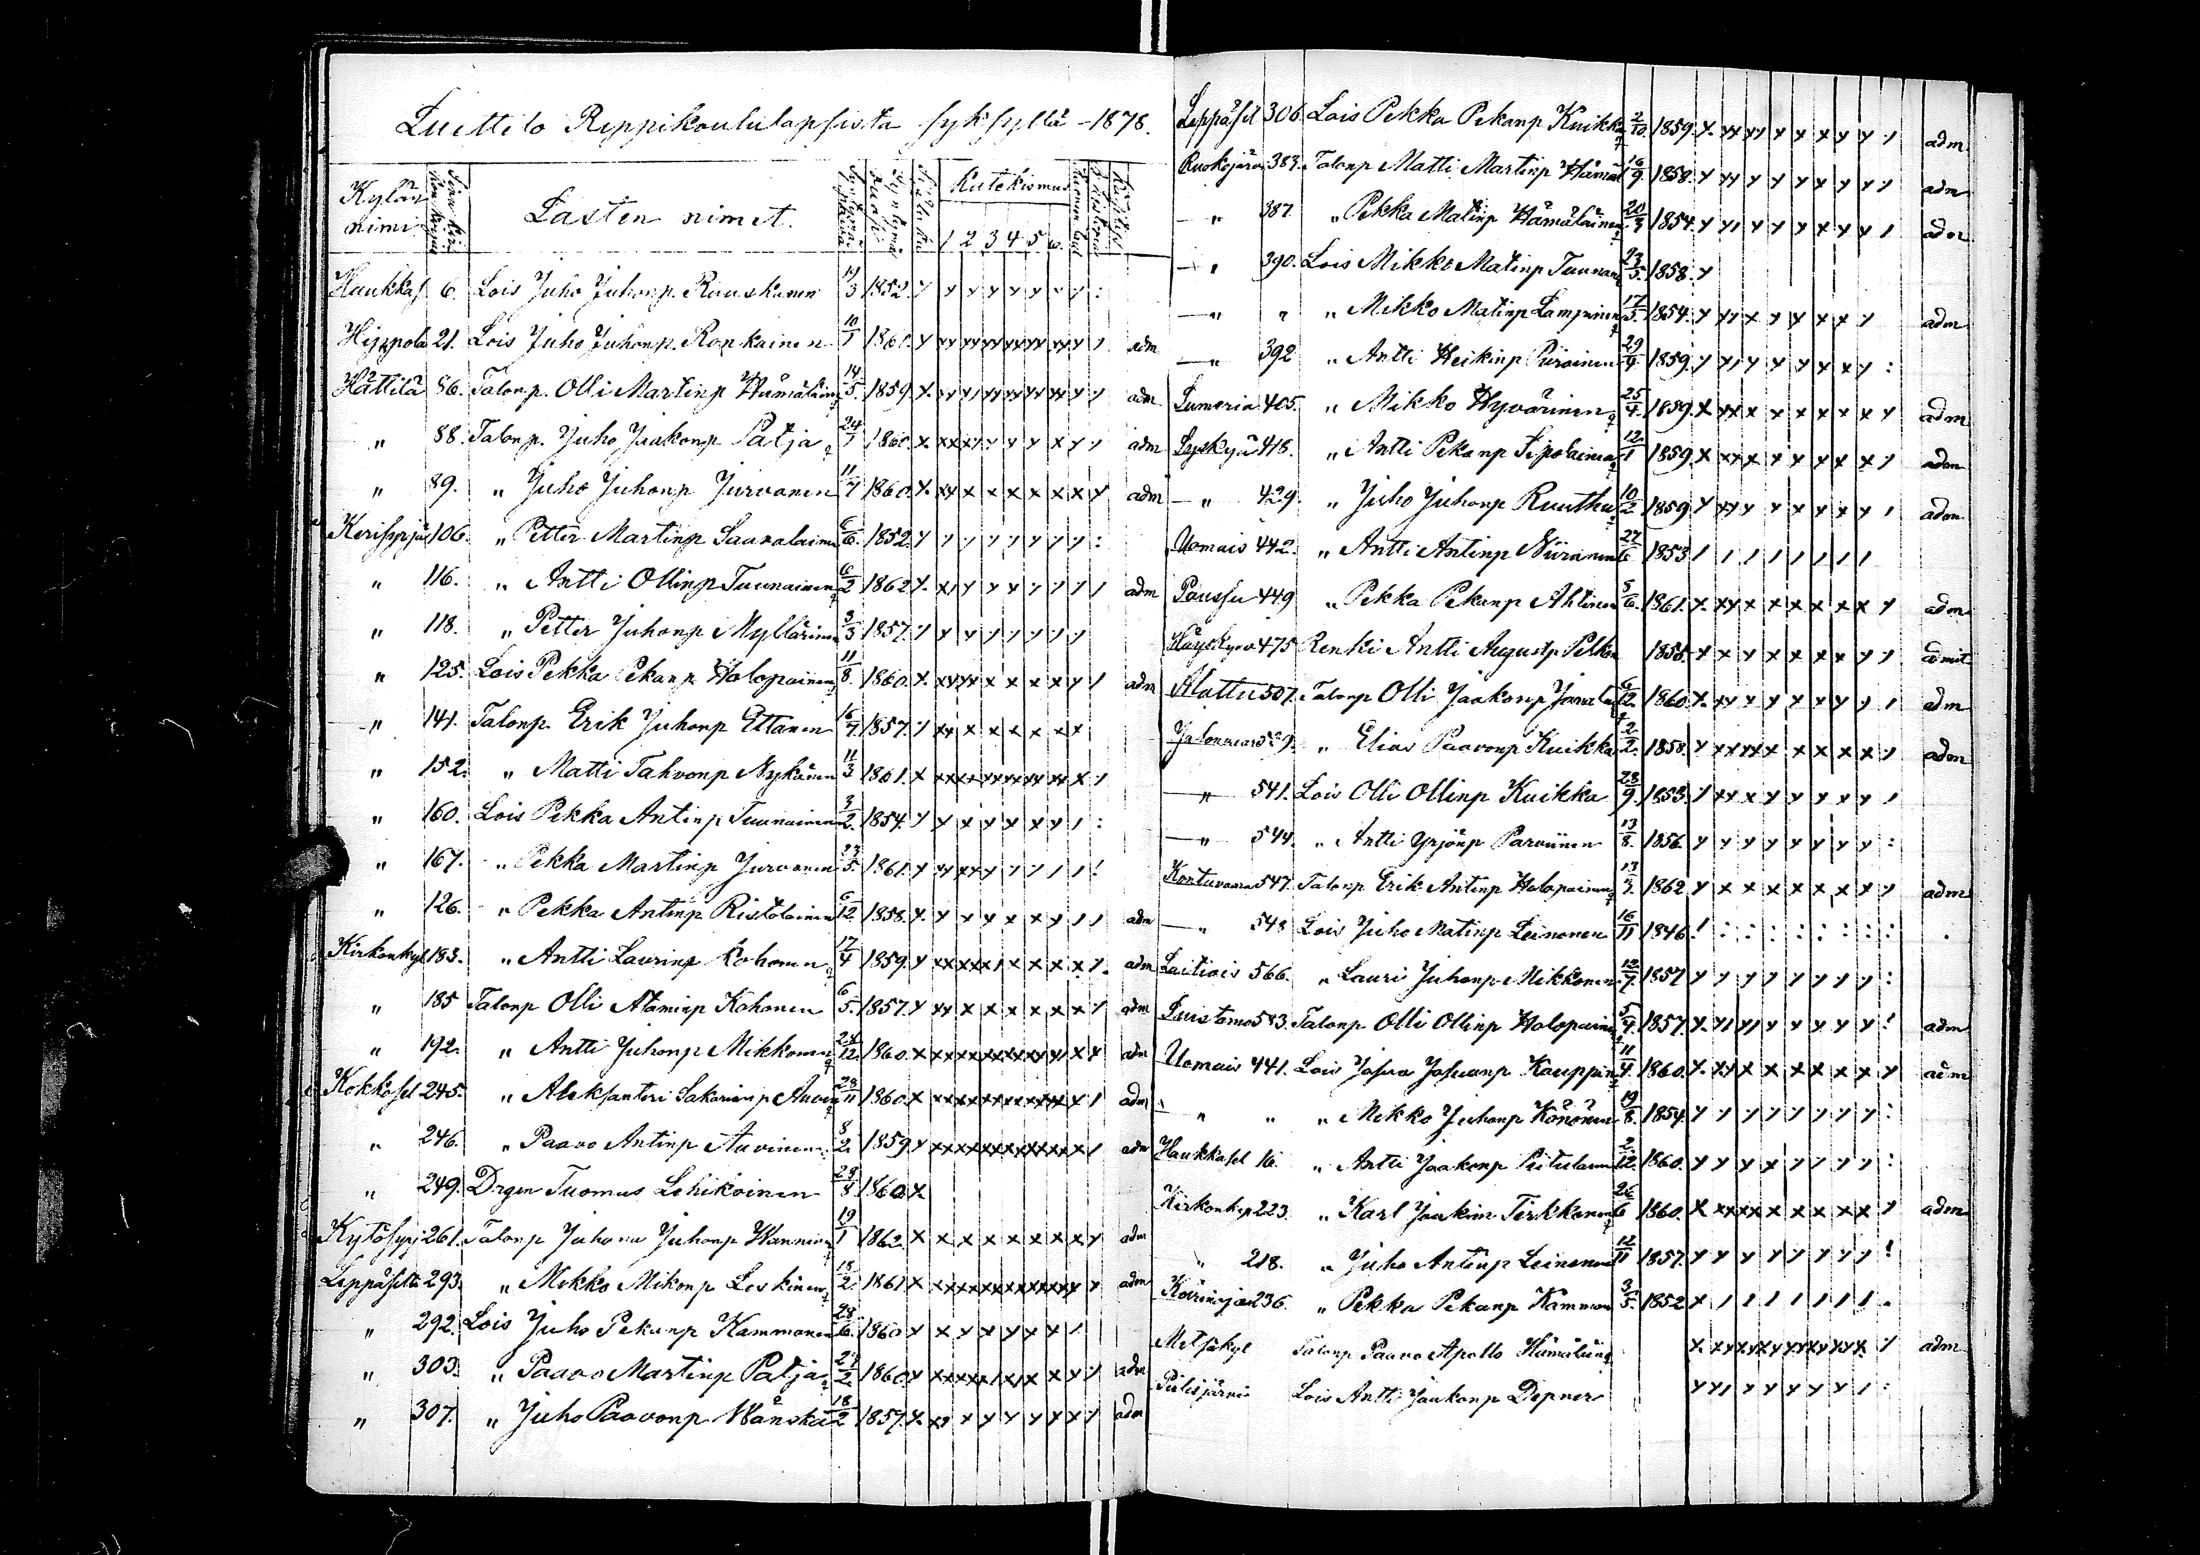 Luettelo Rippikoululapsista syksyllä -1878.
Kylän nimi Lasten nimet. Katekismus
1 2 3 4 5 6.
Haukkas. 6. Lois Juho Juhonp. Ruuskanen 19/3 1852.
Hippola 21. Lois Juho Juhonp. Ronkainen 10/1 1860. adm
Hättilä 86. Talonp. Olli Martinp Hämäläin 14/5 1859. adm
" 88. Talonp. Juho Jaakonp Patja 24/1 1860. adm
" 89. " Juho Juhonp Jurvanen 11/7 1860. adm
Kerisyrjä 106. " Petter Martinp Saavalainen 6/6 1852.
" 116. " Antti Ollinp Tuunainen 6/2 1862. adm
" 118. " Petter Juhonp Myllärinen 3/3 1857.
" 125. Lois Pekka Pekanp Holopainen 11/8 1860. adm
" 141. Talonp Erik Juhonp Ettanen 16/7 1857.
" 152. " Matti Tahvonp Nykänen 11/3 1861.
" 160. Lois Pekka Antinp Tuunainen 3/2 1854.
" 167. " Pekka Martinp Jurvanen 23/5 1861.
" 126. " Pekka Antinp Ristolainen 6/12 1858. adm
Kirkonkyl 183. " Antti Laurinp Kohonen 17/4 1859. adm
" 185 Talonp Olli Ataminp Kohonen 6/5 1857. adm
" 192. " Antti Juhonp Mikkonen 24/12 1860. adm
Kokkosel 245. " Aleksanteri Sakarinp Auvin 23/11 1860. adm
" 246. " Paavo Antinp Auvinen 8/2 1859. adm
" 249. Drgen Tuomas Lehikoinen 1860.
Kytösyrj 261. Talonp Juhana Juhonp Wänninen 19/1 1862. adm
Leppäselk 293. " Mikko Mikonp Leskinen 18/2 1861 adm
" 292. Lois Juho Pekanp Kammonen 28/6 1860
" 303. " Paavo Martinp Patja 27/2 1860. adm
" 307. " Juho Paavonp Wänskä 18/2 1857. adm
Leppäsel 306. Lois Pekka Pekanp Kuikka 2/10 1859. adm
Ruokojärvi 383. Talonp Matti Martinp Hämäl 16/9 1858. adm
— " 387. " Pekka Matinp Hämäläinen 20/3 1854. adm
— " 390. Lois Mikko Matinp Tuunan 23/5 1858.
— " " " Mikko Matinp Lampinen 17/5 1854. adm
— " 392 " Antti Heikinp Piiroinen 29/4 1859.
Lumeria 405. " Mikko Hyvärinen 25/4 1859. adm
Syskyjä 418. " Antti Pekanp Sipolainen 12/1 1859. adm
— " 429. " Juho Juhonp Ruuthu 10/2 1859 adm
Uomais 442. " Antti Antinp Niiranen 27/6 1853
Paussu 449 " Pekka Pekanp Ahtinen 5/6 1861. adm
475 Renki Antti Augustp Pelkon 1858. admit
Alattu 507. Talonp Olli Jaakonp 6/12 1860. adm
Jalovaara 529. " Elias Paavonp Kuikka 2/2 1858. adm
— " 541. Lois Olli Ollinp Kuikka 28/9 1853.
— " 544. " Antti Yrjönp Parviinen 13/8 1856.
Kontuvaara 547. Talonp Erik Antinp Holopainen 13/3 1862 adm
— " 548 Lois Juho Matinp Leinonen 16/11 1846
Laitiois 566. " Lauri Juhonp Mikkonen 12/7 1857
Suistamo 583. Talonp Olli Ollinp Holopainen 5/4 1857. adm
Uomais 441. Lois Josua Josuanp Kauppin 11/4 1860. adm
" " " Mikko Juhonp Könönen 19/8 1854.
Haukkasel 16. " Antti Jaakonp 2/12 1860.
Kirkonkyl 223. " Karl Joakim Tirkkonen 26/6 1860. adm
" 218. " Juho Antinp Leinonen 12/11 1857.
Koirinojan 236. " Pekka Pekanp Kammon 3/5 1852
Metsäkyl Talonp Paavo Apollo Hämäläin adm
Piilisjärvi Lois Antti Jaakonp Depner